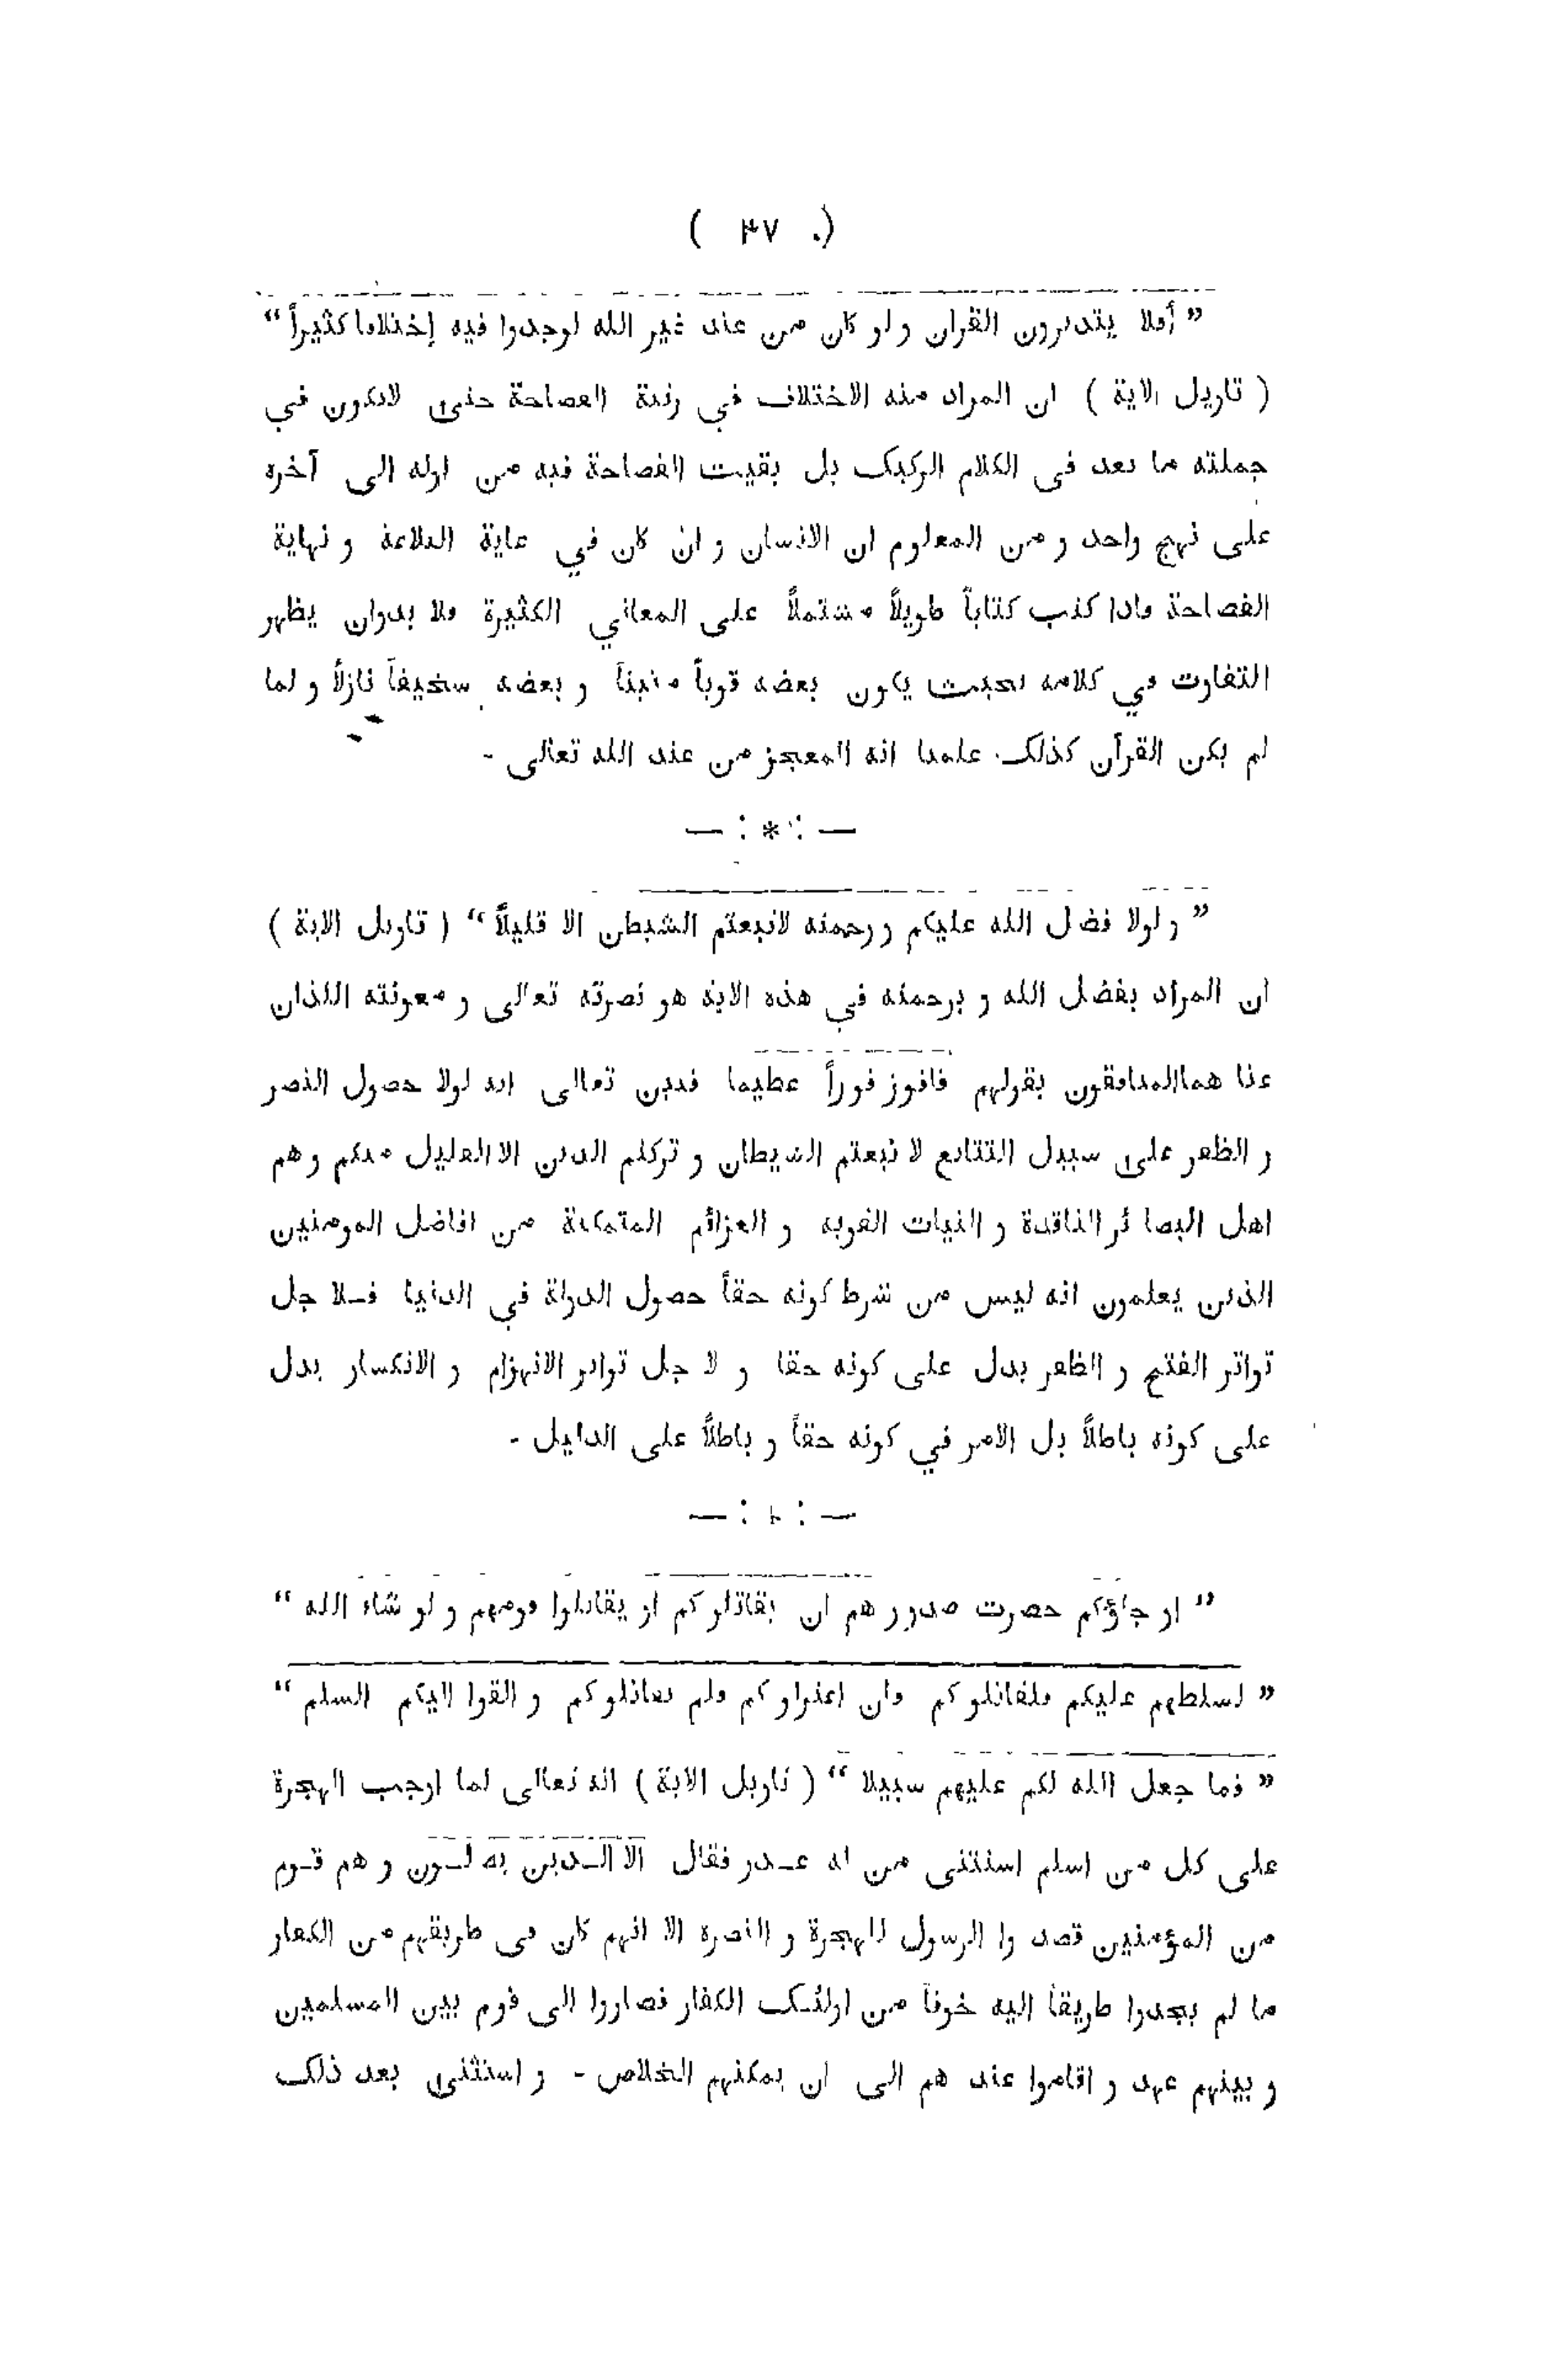 ( ٣٧ )
” أفلا يتدبرون القران ولو كان من عند غير الله لوجدوا فيه إختلافا كثيراً “
( تاويل الاية ) ان المراد منه الاختلاف في رتبة الفصاحة حتى لايكون في
جملته ما يعد فى الكلام الركيك بل بقيت الفصاحة فيه من اوله الى آخره
على نهج واحد و من المعلوم ان الانسان و ان كان في غاية البلاغة و نهاية
الفصاحة فاذا كتب كتاباً طويلاً مشتملاً على المعاني الكثيرة فلا بدوان يظهر
التفاوت في كلامه بحيث يكون بعضه قوياً متيناً و بعضه سخيفاً نازلاً و لما
لم يكن القرآن كذلك علمنا انه المعجز من عند الله تعالى -
— : * : —
” ولولا فضل الله عليكم ورحمته لاتبعتم الشيطن الا قليلاً “ ( تاويل الاية )
ان المراد بفضل الله و برحمته في هذه الاية هو نصرته تعالى و معونته اللذان
عنا هماالمنافقون بقولهم فافوز فوزاً عظيما فبين تعالى انه لولا حصول النصر
و الظفر على سبيل التتابع لا تبعتم الشيطان و تركتم الدين الا القليل منكم وهم
اهل البصا ئر الناقدة و النيات القويه و العزائم المتمكنة من افاضل المومنين
الذين يعلمون انه ليس من شرط كونه حقاً حصول الدولة في الدنيا فـلا جل
تواتر الفتح و الظفر يدل على كونه حقا و لا جل تواتر الانهزام و الانكسار يدل
على كونه باطلاً بل الامر في كونه حقاً و باطلاً على الدليل -
— : * : —
” او جاؤكم حصرت صدورهم ان يقاتلوكم او يقاتلوا قومهم ولو شاء الله “
” لسلطهم عليكم فلقاتلوكم فان اعتزلوكم فلم يقاتلوكم و القوا اليكم السلم “
” فما جعل الله لكم عليهم سبيلا “ ( تاويل الاية ) انه تعالى لما اوجب الهجرة
على كل من اسلم استثنى من له عــذر فقال الا الــذين يصلــون و هم قــوم
من المؤمنين قصد وا الرسول للهجرة و النصره الا انهم كان فى طريقهم من الكفار
ما لم يجدوا طريقاً اليه خوفاً من اولئـك الكفار فصاروا الى قوم بين المسلمين
و بينهم عهد و اقاموا عند هم الى ان يمكنهم الخلاص - و استثنى بعد ذلك